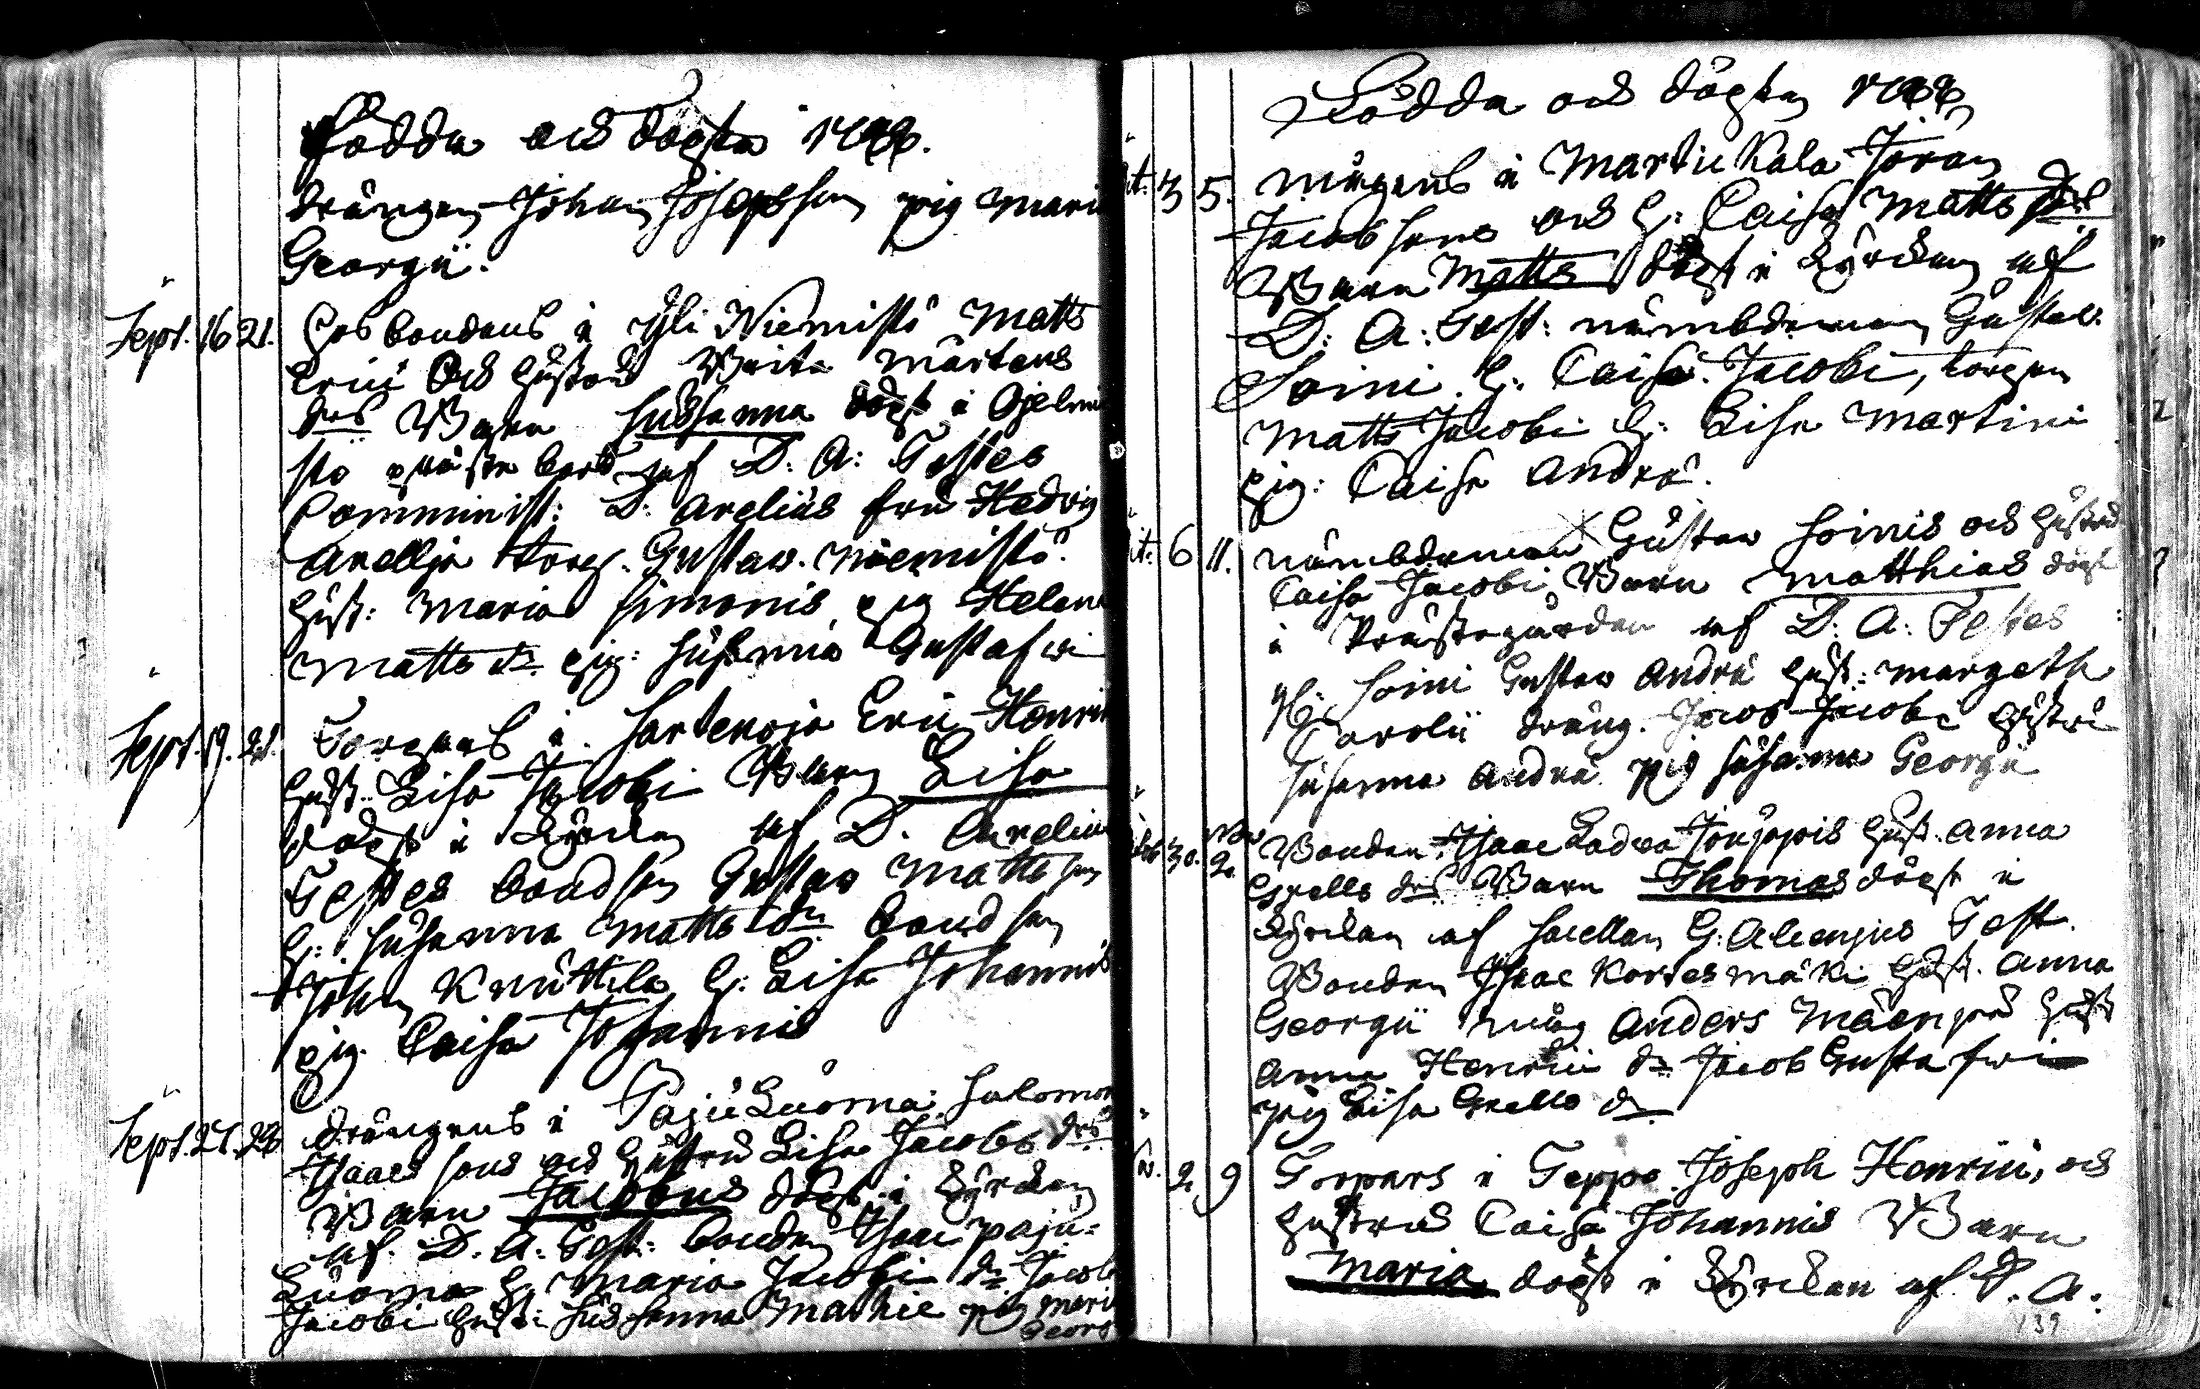 Födda och döpta 1788.
drängen Johan Josephson pig Mari
Georgii.
Sept. 16 21. Hos bondens i Yli Niemistö Matts
Erici och hustrus Brita Mårtens
drs Barn Susanna döpt i
sto af D: A: Testes
Comminist: D: Arelius fru Hedvig
Arellja torp. Gustav. Niemistö.
Hust: Maria Simonis pig Helena
Matts dr pig: Susanna Gustafvi
Sept. 19. 21. Torpars i Eric Henric
Hust: Lisa Jacobi Barn Lisa
döpt i Kyrckan af D. Arelius
Testes bondson Gustav Mattsson
H: Susanna Matts dr bondson
Johan Knuttila H: Lisa Johannis
pig. Caisa Johannis
Sept. 27. 28 drängens i Pajuluoma Salomon
Isaacs sons och hustrus Lisa Jacobs drs
Barn Jacobus döpt i Kyrckan
af D. A. Test: bonden Isac Paju-
luoma H: Maria Jacobi dr: Jacob
Jacobi hust: Susanna Mathie pig Mari
Georg
Födda och döpta 1788
3 5. mågens i Martickala Jöran
Jacobsons och H: Caisa Matts drs
Barn Matts döpt i Kyrckan af
D: A: Test: nämbdeman Gustav
Soini H: Caisa Jacobi, torpar
Matts Jacobi H: Lisa Martini
pig: Caisa Andræ.
6 11. nämbdeman Gustav Soinis och hustrus
Caisa Jacobi Barn Matthias döpt
i Prästegården af D. A. Testes
Soini Gustav Andræ hust: Margeth
Carolii dräng. Jacob Jacobi hustru
Susanna Andræ pig Susanna Georgii
30. Nov 2. Bonden Isaac Ladva Jouppis hust. Anna
Grells drs Barn Thomas döpt i
Kyrckan af Sacellan G. Alcenjus Test.
Bonden Isaac Kortesmäki hust. Anna
Georgii måg Anders Mäenpää hust
Anna Henrici dr Jacob Gustafvi
pig Lisa Grells dr
N. 2 9 Torpars i Teppo Joseph Henrici, och
hustrus Caisa Johannis Barn
Maria döpt i Kyrckan af D. A.
139